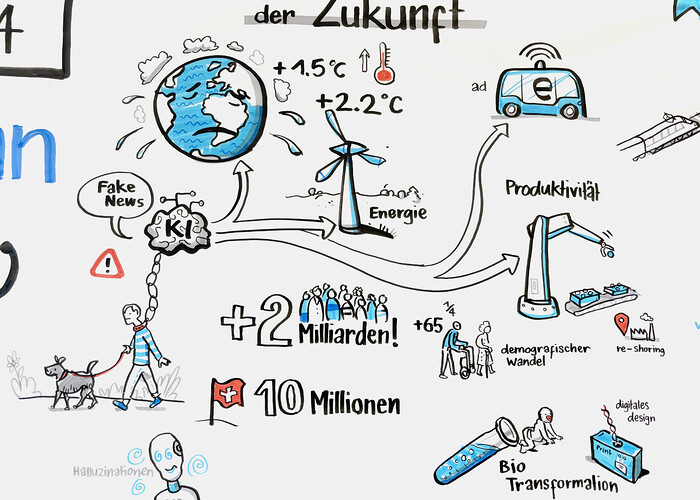 der Zukunft
4
+1.5°C
+2.2°C
ad
e
Fake
News
KI
Energie
Produktivität
+2
Milliarden!
+65
1/4
demografischer
Wandel
re-shoring
10 Millionen
digitales
design
Print
Halluzinationen
Bio
Transformation